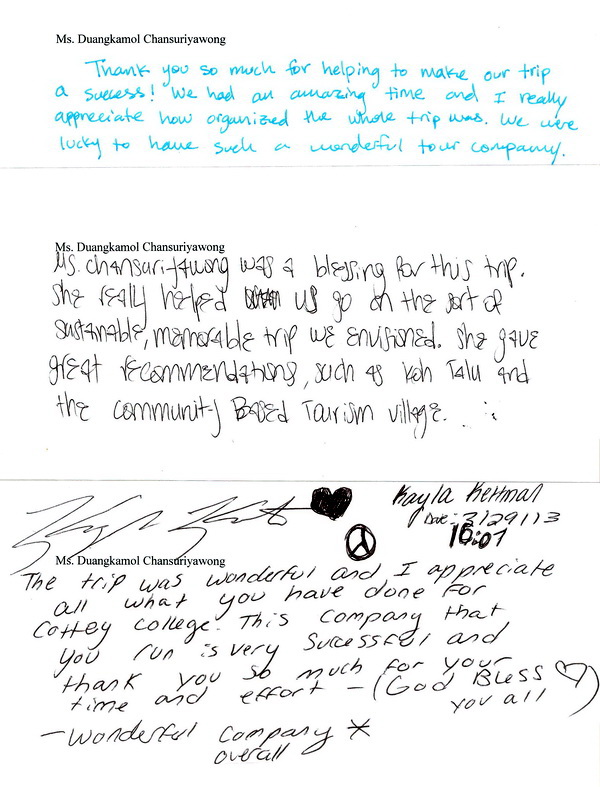 Ms. Duangkamol Chansuriyawong
Thank you so much for helping to make our trip
a success! We had an amazing time and I really
appreciate how organized the whole trip was. We were
lucky to have such a wonderful tour company.
Ms. Duangkamol Chansuriyawong
Ms. Chansuri-yawong was a blessing for this trip.
She really helped us go on the sort of
sustainable, memorable trip we envisioned. She gave
great recommendations, such as Koh Talu and
the community Based Tourism village.
Kayla Kettman
Date: 3/29/13
16:07
Ms. Duangkamol Chansuriyawong
The trip was wonderful and I appreciate
all what you have done for
Cottey College. This company that
you run is very successful and
thank you so much for your
time and effort - (God Bless
you all )
- Wonderful company *
overall